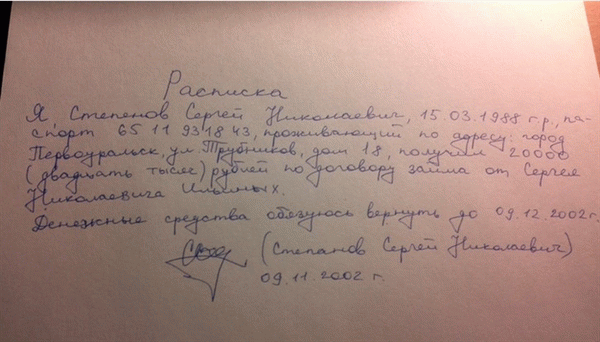 Расписка
Я, Степанов Сергей Николаевич, 15.03.1988 г.р., па-
спорт 65 11 931843, проживающий по адресу: город
Первоуральск, ул. Трубников, дом 18, получил 20000
(двадцать тысяч) рублей по договору займа от Сергея
Николаевича Ильиных.
Денежные средства обязуюсь вернуть до 09.12.2002г.
(Степанов Сергей Николаевич)
09.11.2002 г.